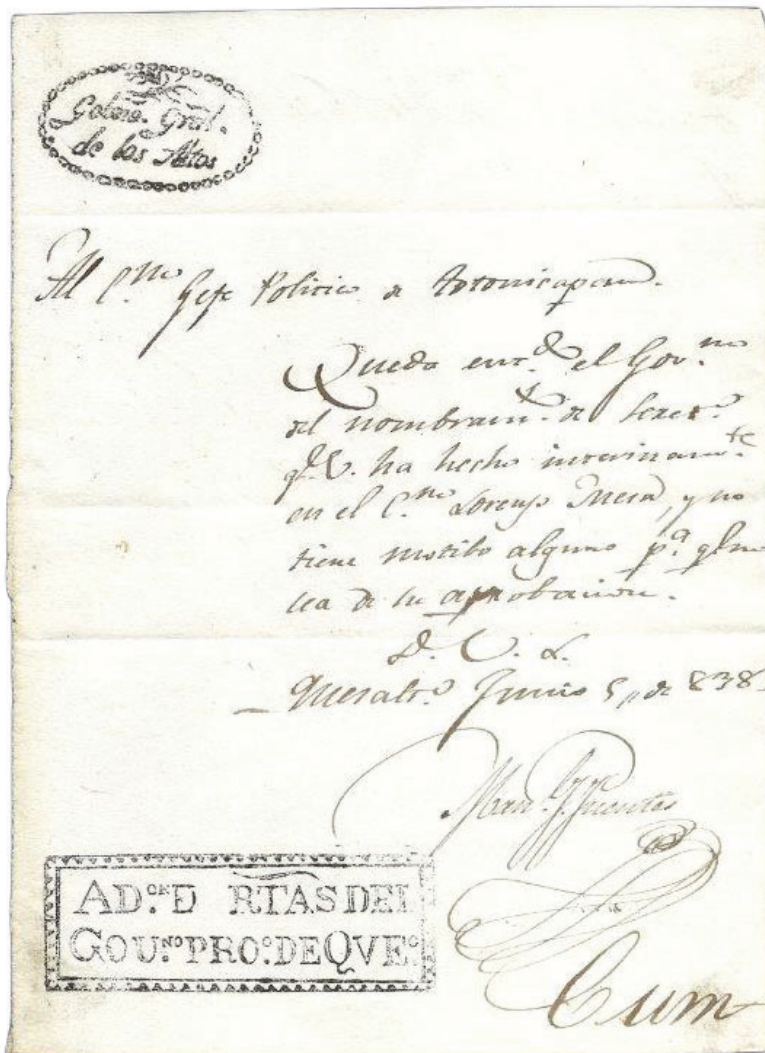 Gobno. Gral.
de los Altos
Al C.no Gefe Politico de Totonicapam.
Queda ent.do el Gov.no
del nombram.to de Secret.o
q.e V. ha hecho interinam.te
en el C.no Lorenzo Mesa, y no
tiene motibo alguno p.a q.e no
sea de su aprobacion.
D. U. L.
Quesalt.o Junio 5 de 838
Man. J. Fuentes
AD.ON D RTAS DEL
GOU.NO PRO.O DE QVE.O